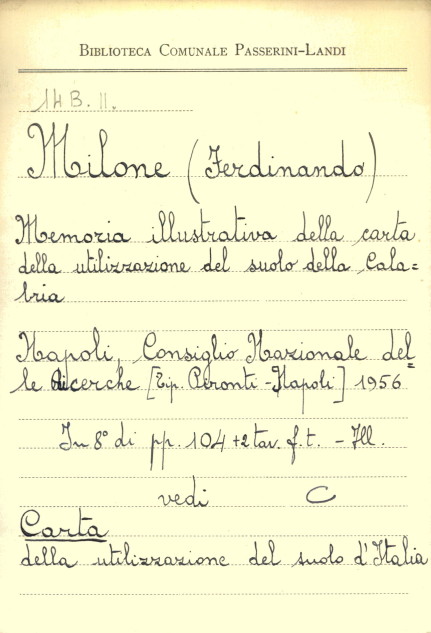 BIBLIOTECA COMUNALE PASSERINI-LANDI
14 B. 11.
Milone (Ferdinando)
Memoria illustrativa della carta
della utilizzazione del suolo della Cala=
bria
Napoli, Consiglio Nazionale del=
le Ricerche [Tip. Pironti - Napoli] 1956
In 8° di pp. 104 + 2 tav. f. t. - Ill.
vedi C
Carta
della utilizzazione del suolo d'Italia